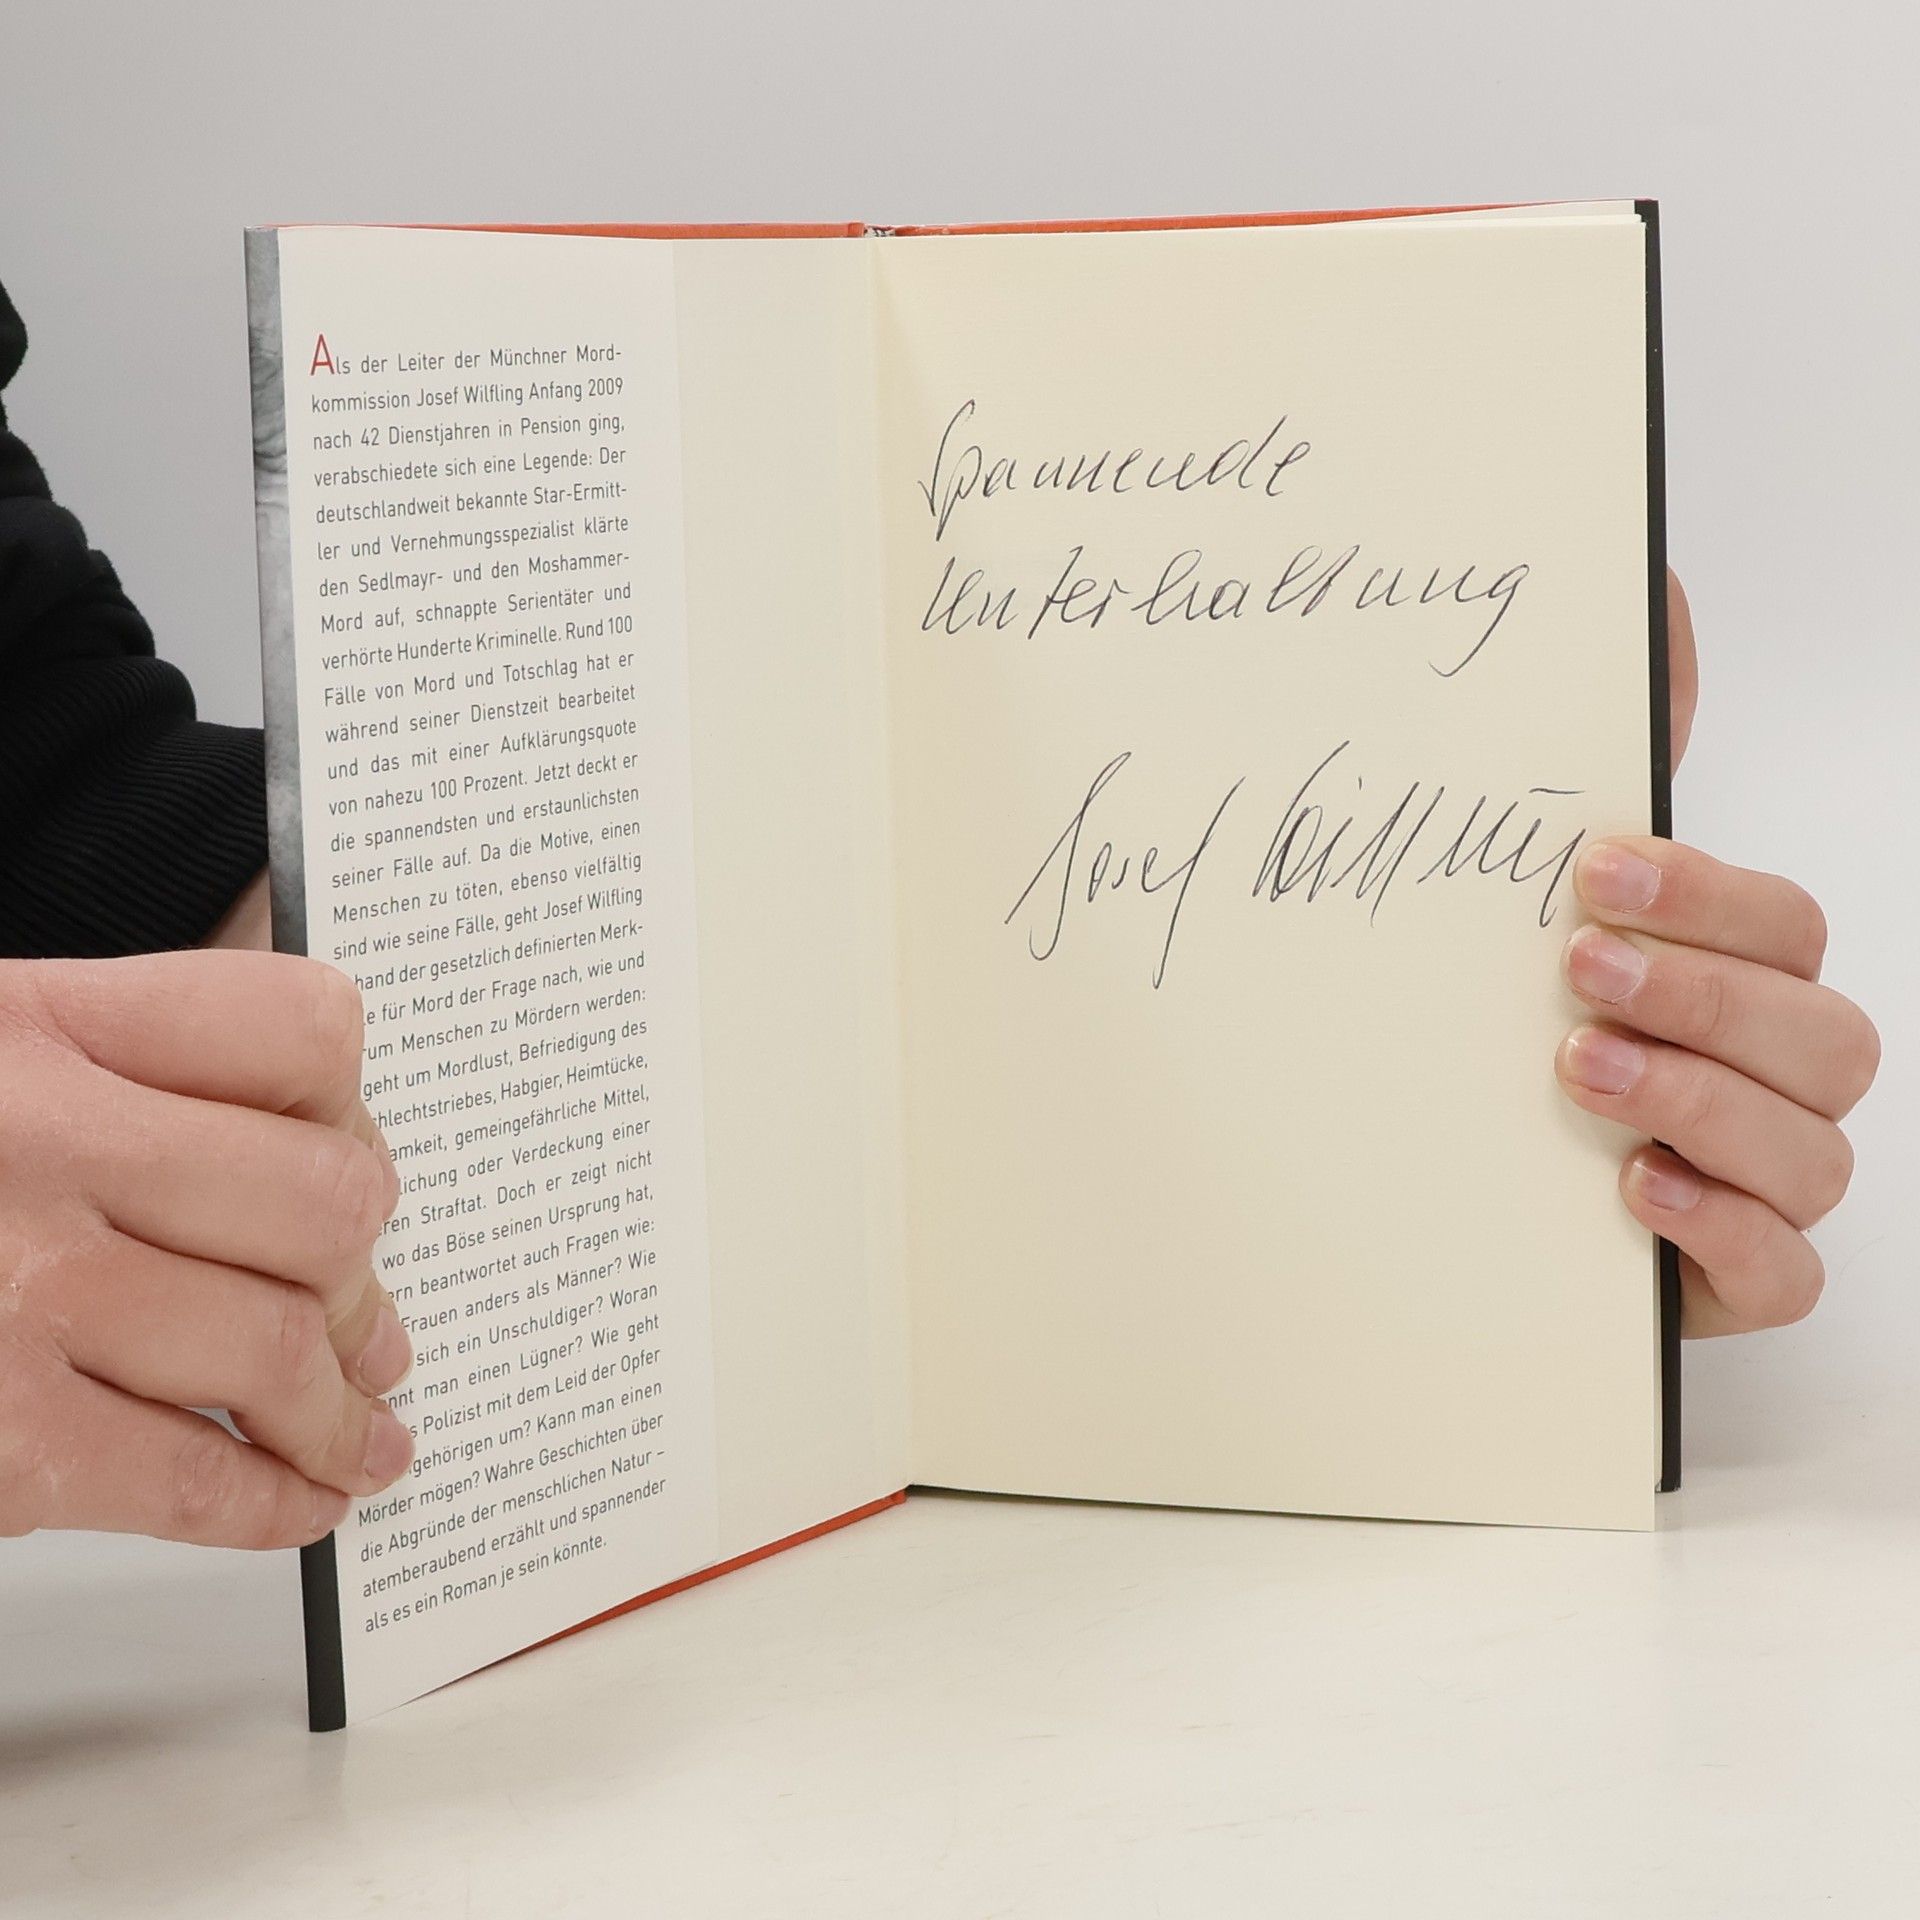 Als der Leiter der Münchner Mord-
kommission Josef Wilfling Anfang 2009
nach 42 Dienstjahren in Pension ging,
verabschiedete sich eine Legende: Der
deutschlandweit bekannte Star-Ermitt-
ler und Vernehmungsspezialist klärte
den Sedlmayr- und den Moshammer-
Mord auf, schnappte Serientäter und
verhörte Hunderte Kriminelle. Rund 100
Fälle von Mord und Totschlag hat er
während seiner Dienstzeit bearbeitet
und das mit einer Aufklärungsquote
von nahezu 100 Prozent. Jetzt deckt er
die spannendsten und erstaunlichsten
seiner Fälle auf. Da die Motive, einen
Menschen zu töten, ebenso vielfältig
sind wie seine Fälle, geht Josef Wilfling
hand der gesetzlich definierten Merk-
le für Mord der Frage nach, wie und
rum Menschen zu Mördern werden:
geht um Mordlust, Befriedigung des
chlechtstriebes, Habgier, Heimtücke,
amkeit, gemeingefährliche Mittel,
lichung oder Verdeckung einer
ren Straftat. Doch er zeigt nicht
wo das Böse seinen Ursprung hat,
ern beantwortet auch Fragen wie:
Frauen anders als Männer? Wie
sich ein Unschuldiger? Woran
nnt man einen Lügner? Wie geht
s Polizist mit dem Leid der Opfer
gehörigen um? Kann man einen
Mörder mögen? Wahre Geschichten über
die Abgründe der menschlichen Natur –
atemberaubend erzählt und spannender
als es ein Roman je sein könnte.
Spannende
Unterhaltung
Josef Wilfling